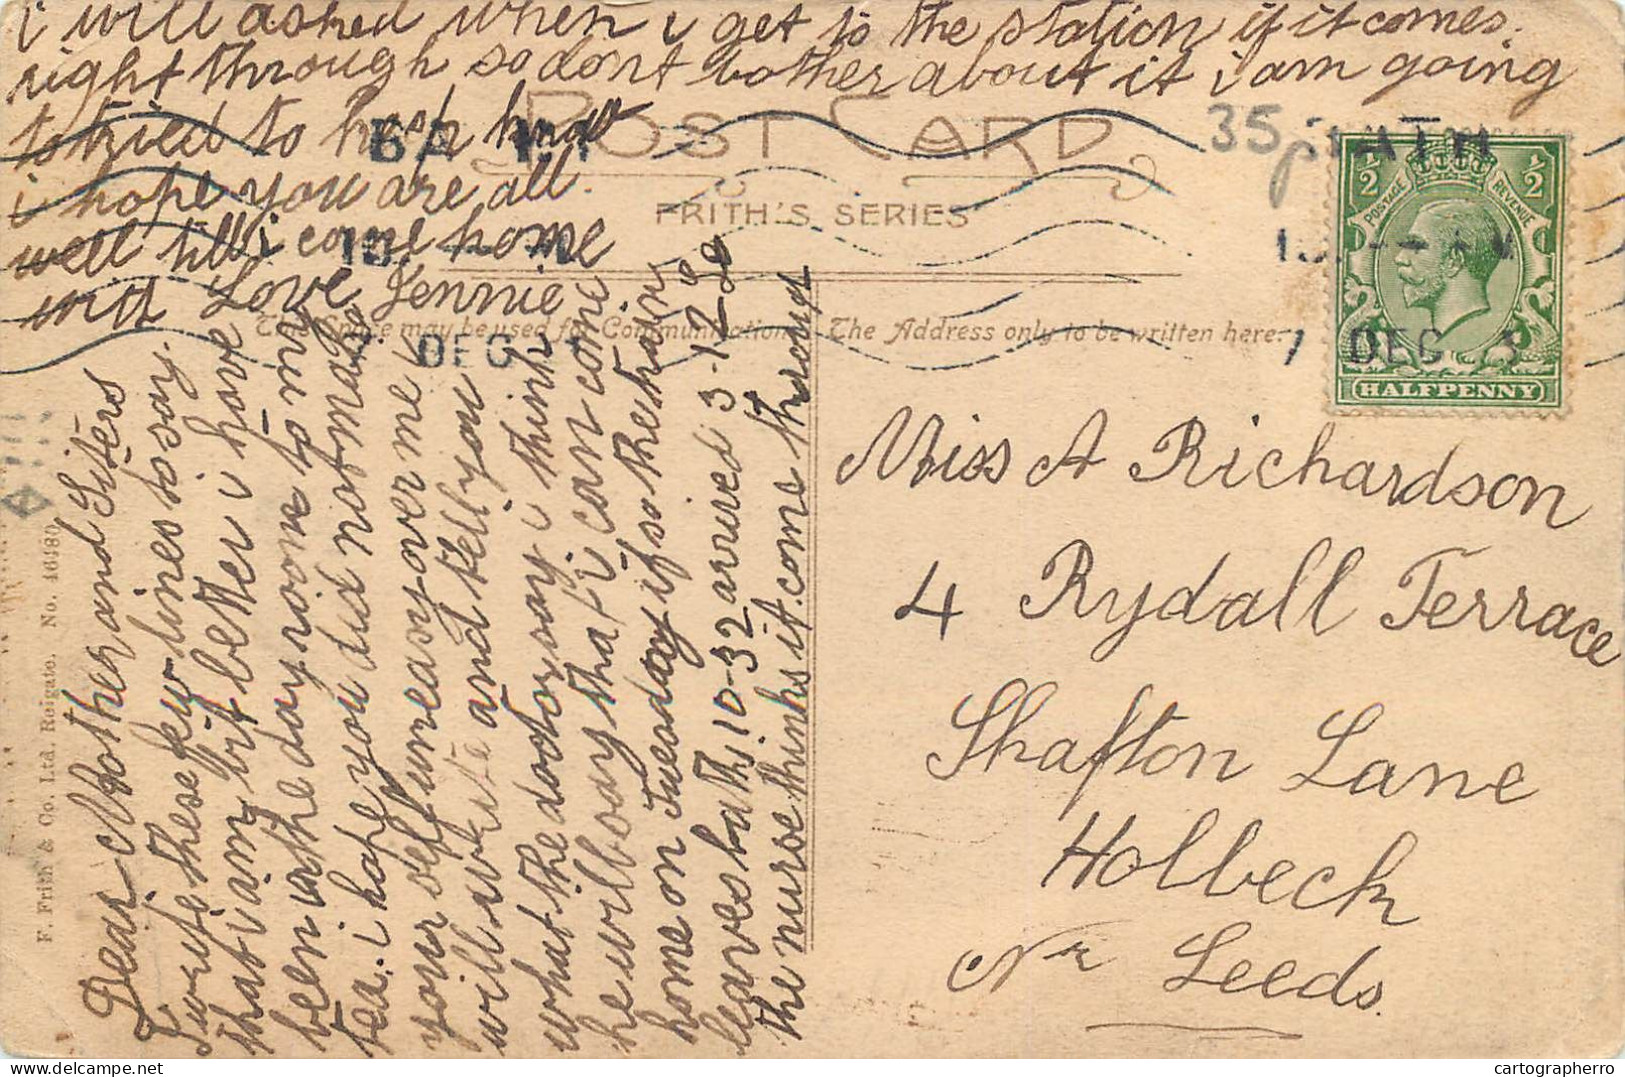 Dear Mother and Sisters
I write these few lines to say
that i am bit better i have
been in the day room to my
tea. i hope you dix not make
your self uneasy over me i
will write and tell you
what the doctor say i think
he will boay that i can come
home on Tuesday if so the train
leaves bath. 10-32 arrived 3-12 Le
the nurse thinks it. come through
i will asked when i get to the station if it comes.
right through so dont bother about it i am going
to tried to
i hope you are all.
well till i come home
Love Jennie
POST CARD
FRITH'S SERIES
This Space may be used for Communication
The Address only to be written here.
35p
BATH
7 DEC
BATH
7 DEC
½ ½
POSTAGE REVENUE
HALFPENNY
Miss A Richardson
4 Rydall Terrace
Shafton Lane
Holbeck
Nr Leeds.
F. Frith & Co. Ltd. Reigate. No. 46480
cartographerro